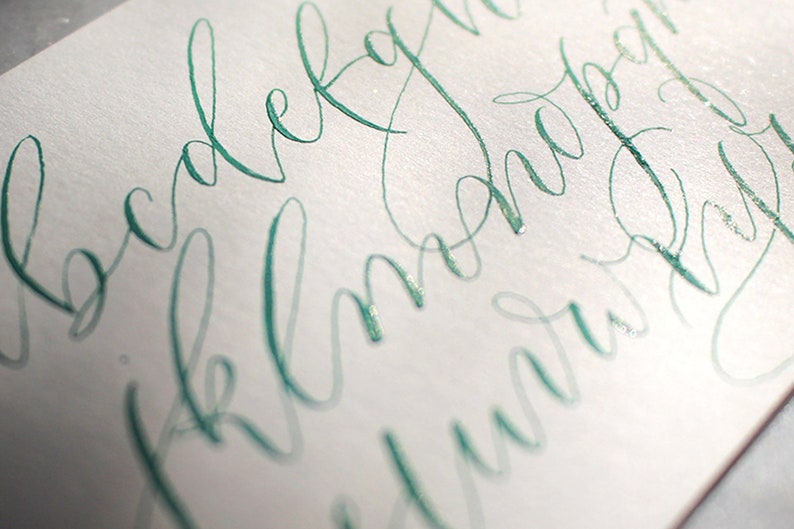 bcdefgh
jklmnopq
tuvwxyz